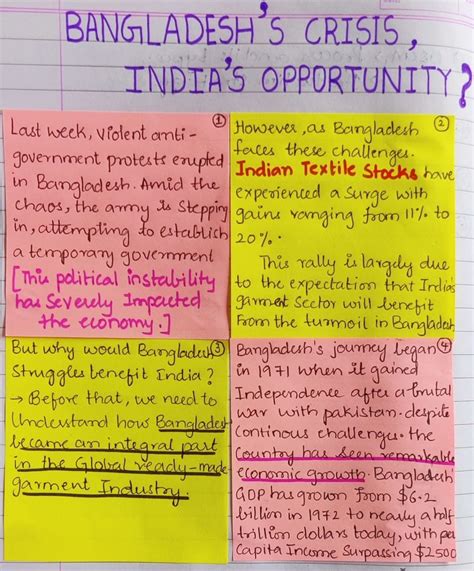 BANGLADESH'S CRISIS,
INDIA'S OPPORTUNITY?
①
Last week, violent anti-
government protests erupted
in Bangladesh. Amid the
chaos, the army is stepping
in, attempting to establish
a temporary government
[This political instability
has severely Impacted
the economy.]
②
However, as Bangladesh
faces these challenges.
Indian Textile Stocks have
experienced a surge with
gains ranging from 11% to
20%.
This rally is largely due
to the expectation that India's
garment sector will benefit
from the turmoil in Bangladesh
③
But why would Bangladesh
struggles benefit India?
→ Before that, we need to
Understand how Bangladesh
became an integral part
in the Global ready-made
garment Industry.
④
Bangladesh's journey began
in 1971 when it gained
Independence after a brutal
war with pakistan. despite
continous challenges. the
country has seen remarkable
economic growth. Bangladesh
GDP has grown from $6.2
billion in 1972 to nearly a half
trillion dollars today, with per
Capita Income Surpassing $2500